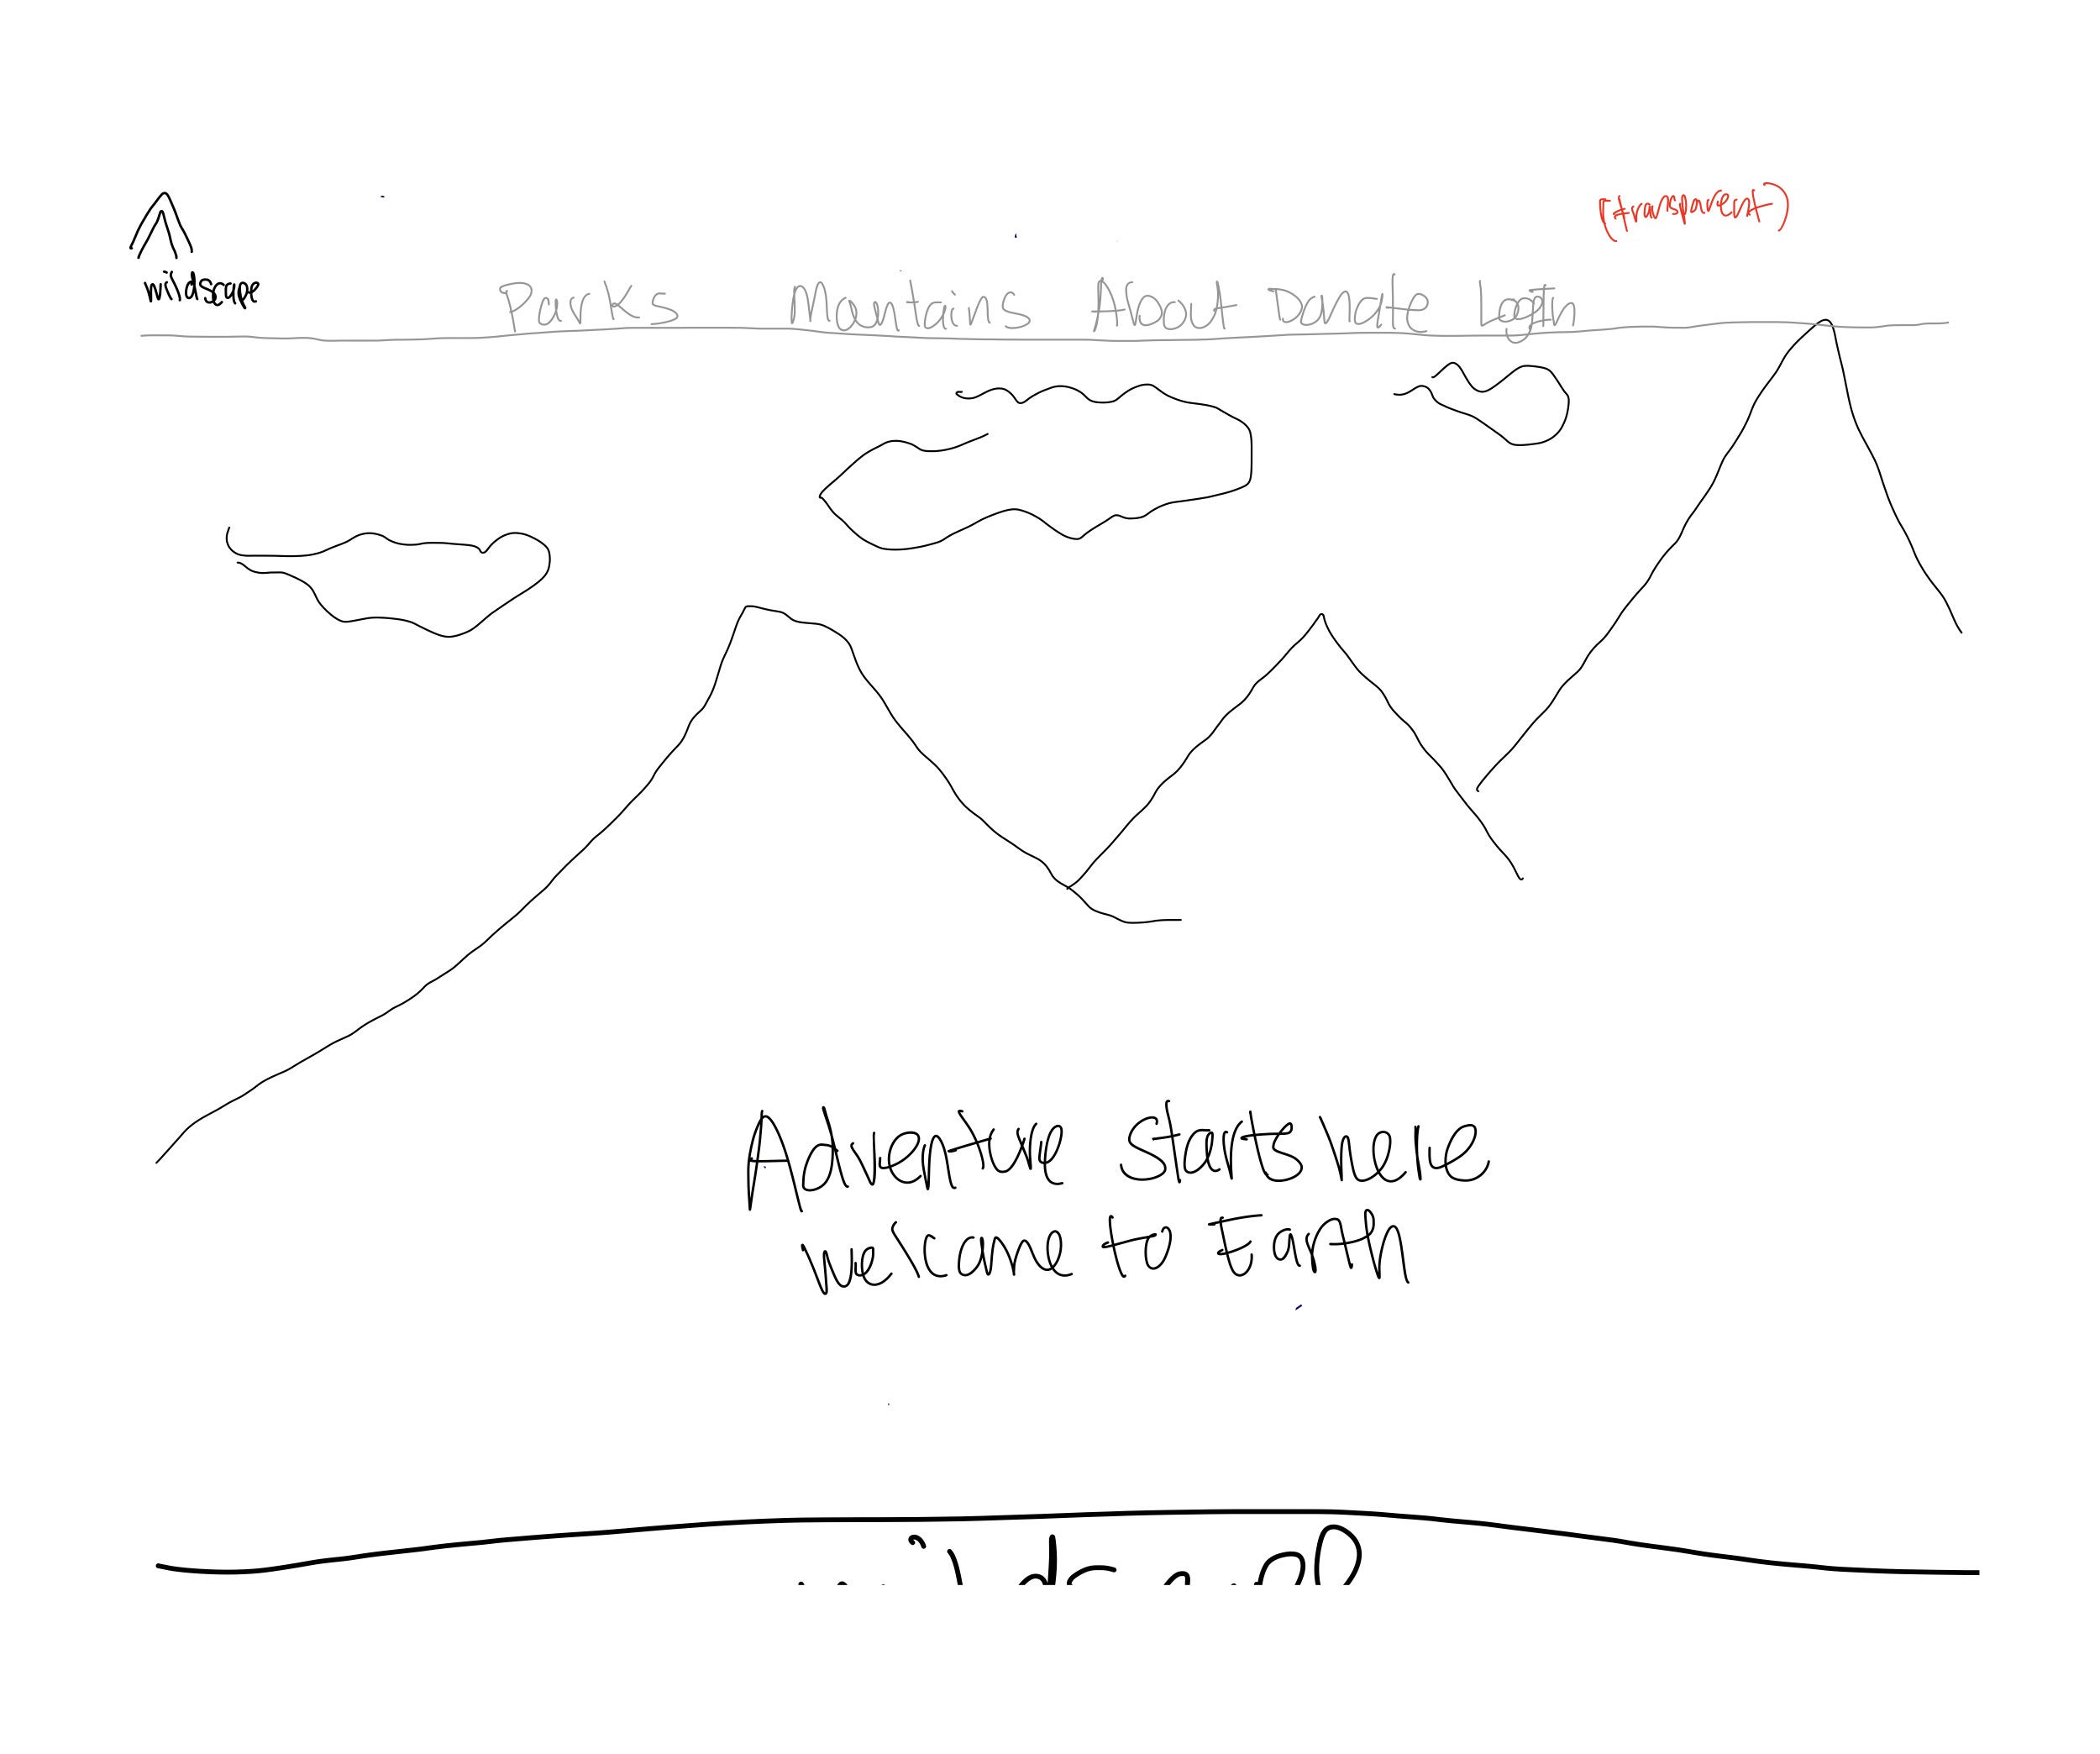 (transparent)
wildscape
Parks Mountains About Donate Login
Adventure starts here
welcome to Earth